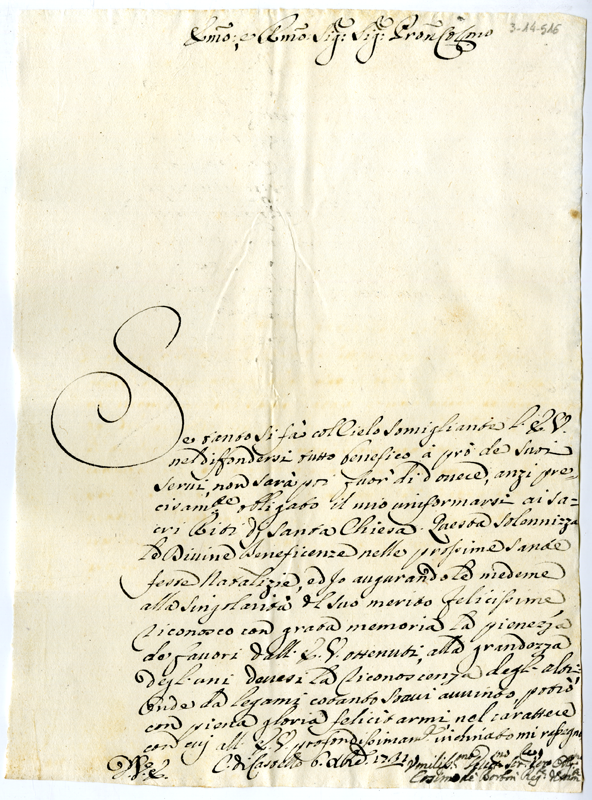 3-14-516
Emo: e Rmo: Sig: Sig: Pron Colmo
Se tanto si fà col Cielo somigliante l'E.V.
nel diffondersi tutto benefico à prò de suoi
servi, non sarà poi fuor di dovere, anzi pre-
cisamte obligato il mio uniformarsi ai sa-
cri Riti di Santa Chiesa. Questa solennizza
le Divine Beneficenze nelle prossime Sante
feste Natalizie, ed Io augurandole medeme
alla singolarità del suo merito felicissime
riconosco con grata memoria la pienezza
de favori dall'E.V. ottenuti, alla grandezza
degl'uni devesi la riconoscenza degl'altri
onde da legami cotanto soavi avvinto, potrò
con piena gloria felicitarmi nel carattere
con cui all'E.V. profondissimamte inchinato mi rassegno
C. di Castello 6. Xbre 1724